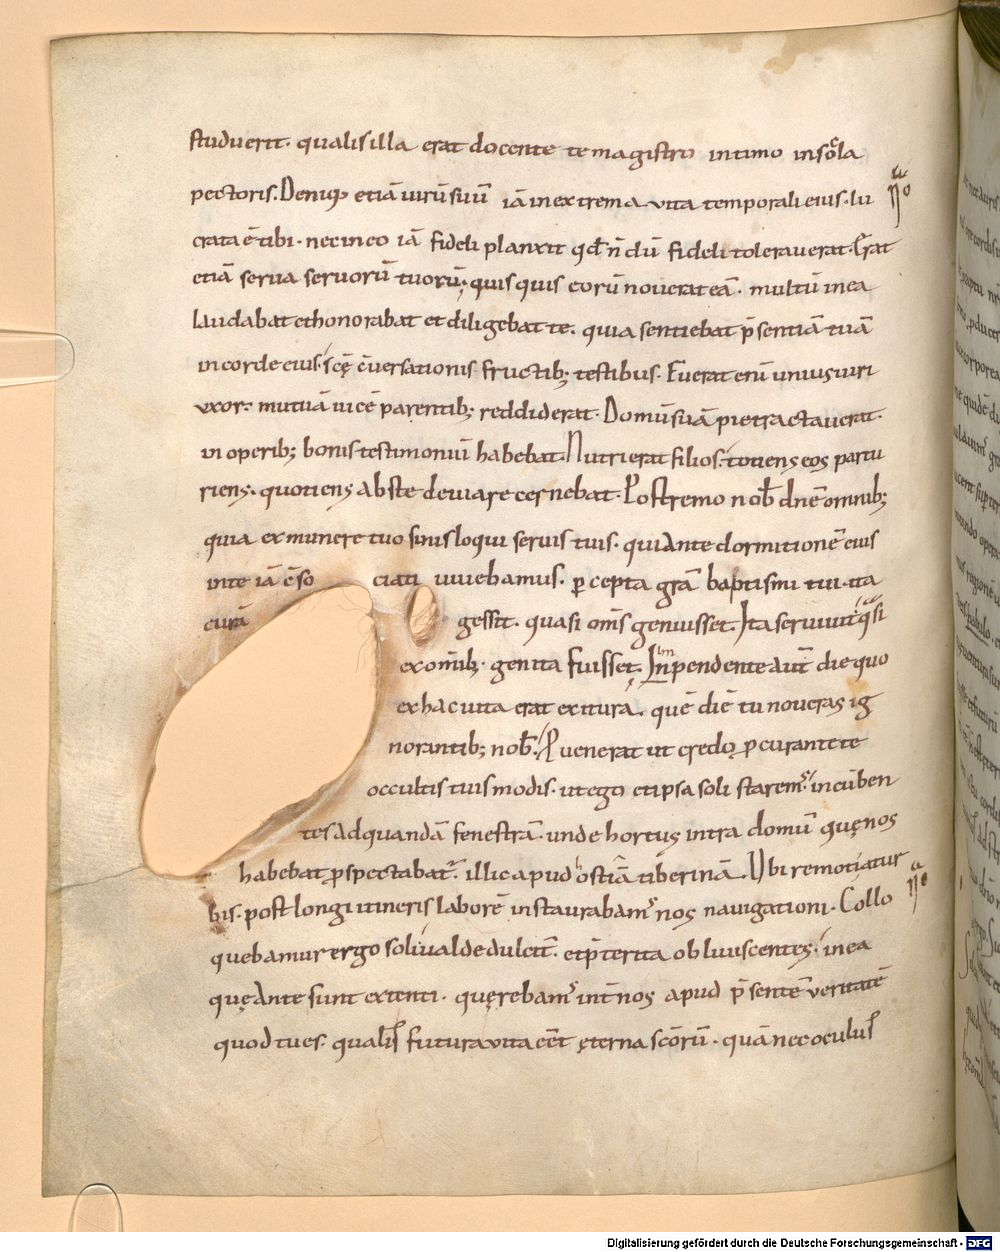 studuerit. qualis illa erat docente te magistro intimo in scola
pectoris. Deniq; etiā uirū suū iā in extrema uita temporali eius. lu
crata ē tibi. nec in eo iā fideli planxit qđ n̄ dū fideli tolerauerat. Erat
etiā serua seruorū tuorū; quisquis eorū nouerat eā. multū in ea
laudabat et honorabat et diligebat te. quia sentiebat p̄sentiā tuā
in corde eius. scę c̄uersationis fructib; testibus. Fuerat enī unius uiri
uxor. mutuā uicē parentib; reddiderat. Domū suā pie tractauerat.
in operib; bonis testimoniū habebat. Nutrierat filios. totiens eos partu
riens. quotiens abs te deuiare cernebat. Postremo nob̄ dn̄e omnib;
quia ex munere tuo sinis loqui seruis tuis. qui ante dormitionē eius
in te iā c̄so ciati uiuebamus. ꝑcepta grā baptismi tui. ita
curā gessit. quasi om̄s genuisset. Ita seruiuit q̊si
ex om̄ib; genita fuisset. Inpendente aut̄ die quo
ex hac uita erat exitura. quē diē tu noueras ig
norantib; nob̄. Puenerat ut credo ꝓcurante te
occultis tuis modis. ut ego et ipsa soli starem᷒ incūben
tes. ad quandā fenestrā. unde hortus intra domū quę nos
habebat ꝓspectabat᷒. illic apud hostiā tiberinā. Ubi remoti a tur
bis. post longi itineris laborē instaurabam᷒ nos nauigationi. Collo
quebamur ergo soli ualde dulcit̄. et p̄terita obliuiscentes. in ea
quę ante sunt extenti. quęrebam᷒ int̄ nos apud p̄sentē ueritatē
quod tu es. qualis futura uita eēt ęterna scōrū. quā nec oculus
Digitalisierung gefördert durch die Deutsche Forschungsgemeinschaft - DFG